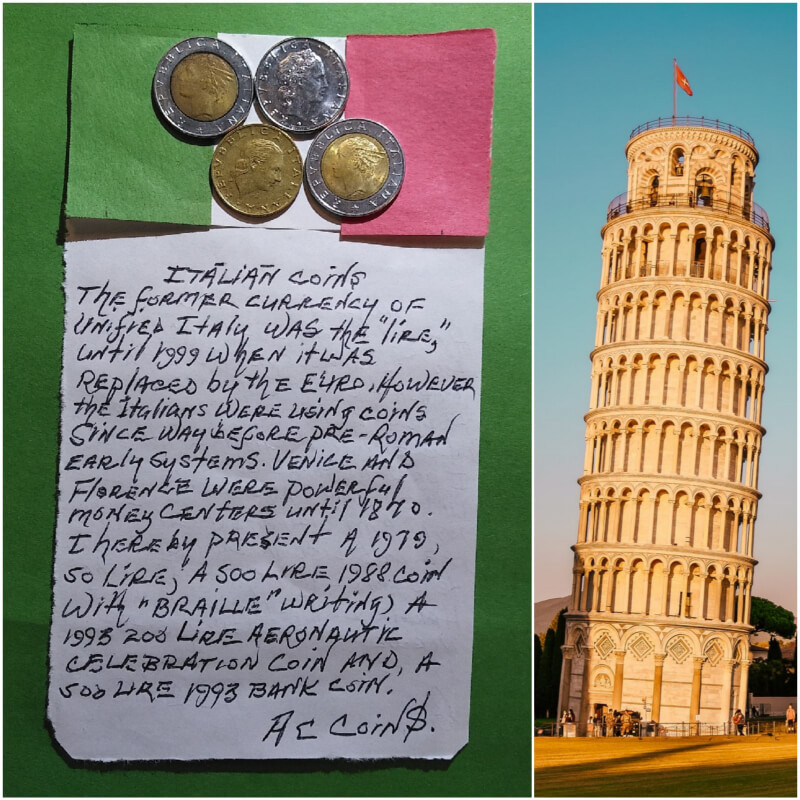 REPVBBLICA ITALIANA
REPVBBLICA ITALIANA
REPVBBLICA ITALIANA
REPVBBLICA ITALIANA
ITALIAN COINS
THE FORMER CURRENCY OF
UNIFIED ITALY WAS THE "LIRE,"
UNTIL 1999 WHEN IT WAS
REPLACED by THE EURO. HOWEVER
the ITALIANS WERE USING COINS
SINCE WAY BEFORE PRE-ROMAN
EARLY SYSTEMS. VENICE AND
FLORENCE WERE POWERFUL
MONEY CENTERS UNTIL 1870.
I HEREBY PRESENT A 1979,
50 LIRE, A 500 LIRE 1988 COIN
WITH "BRAILLE" WRITING, A
1993 200 LIRE AERONAUTIC
CELEBRATION COIN AND, A
500 LIRE 1993 BANK COIN.
AC COIN$.